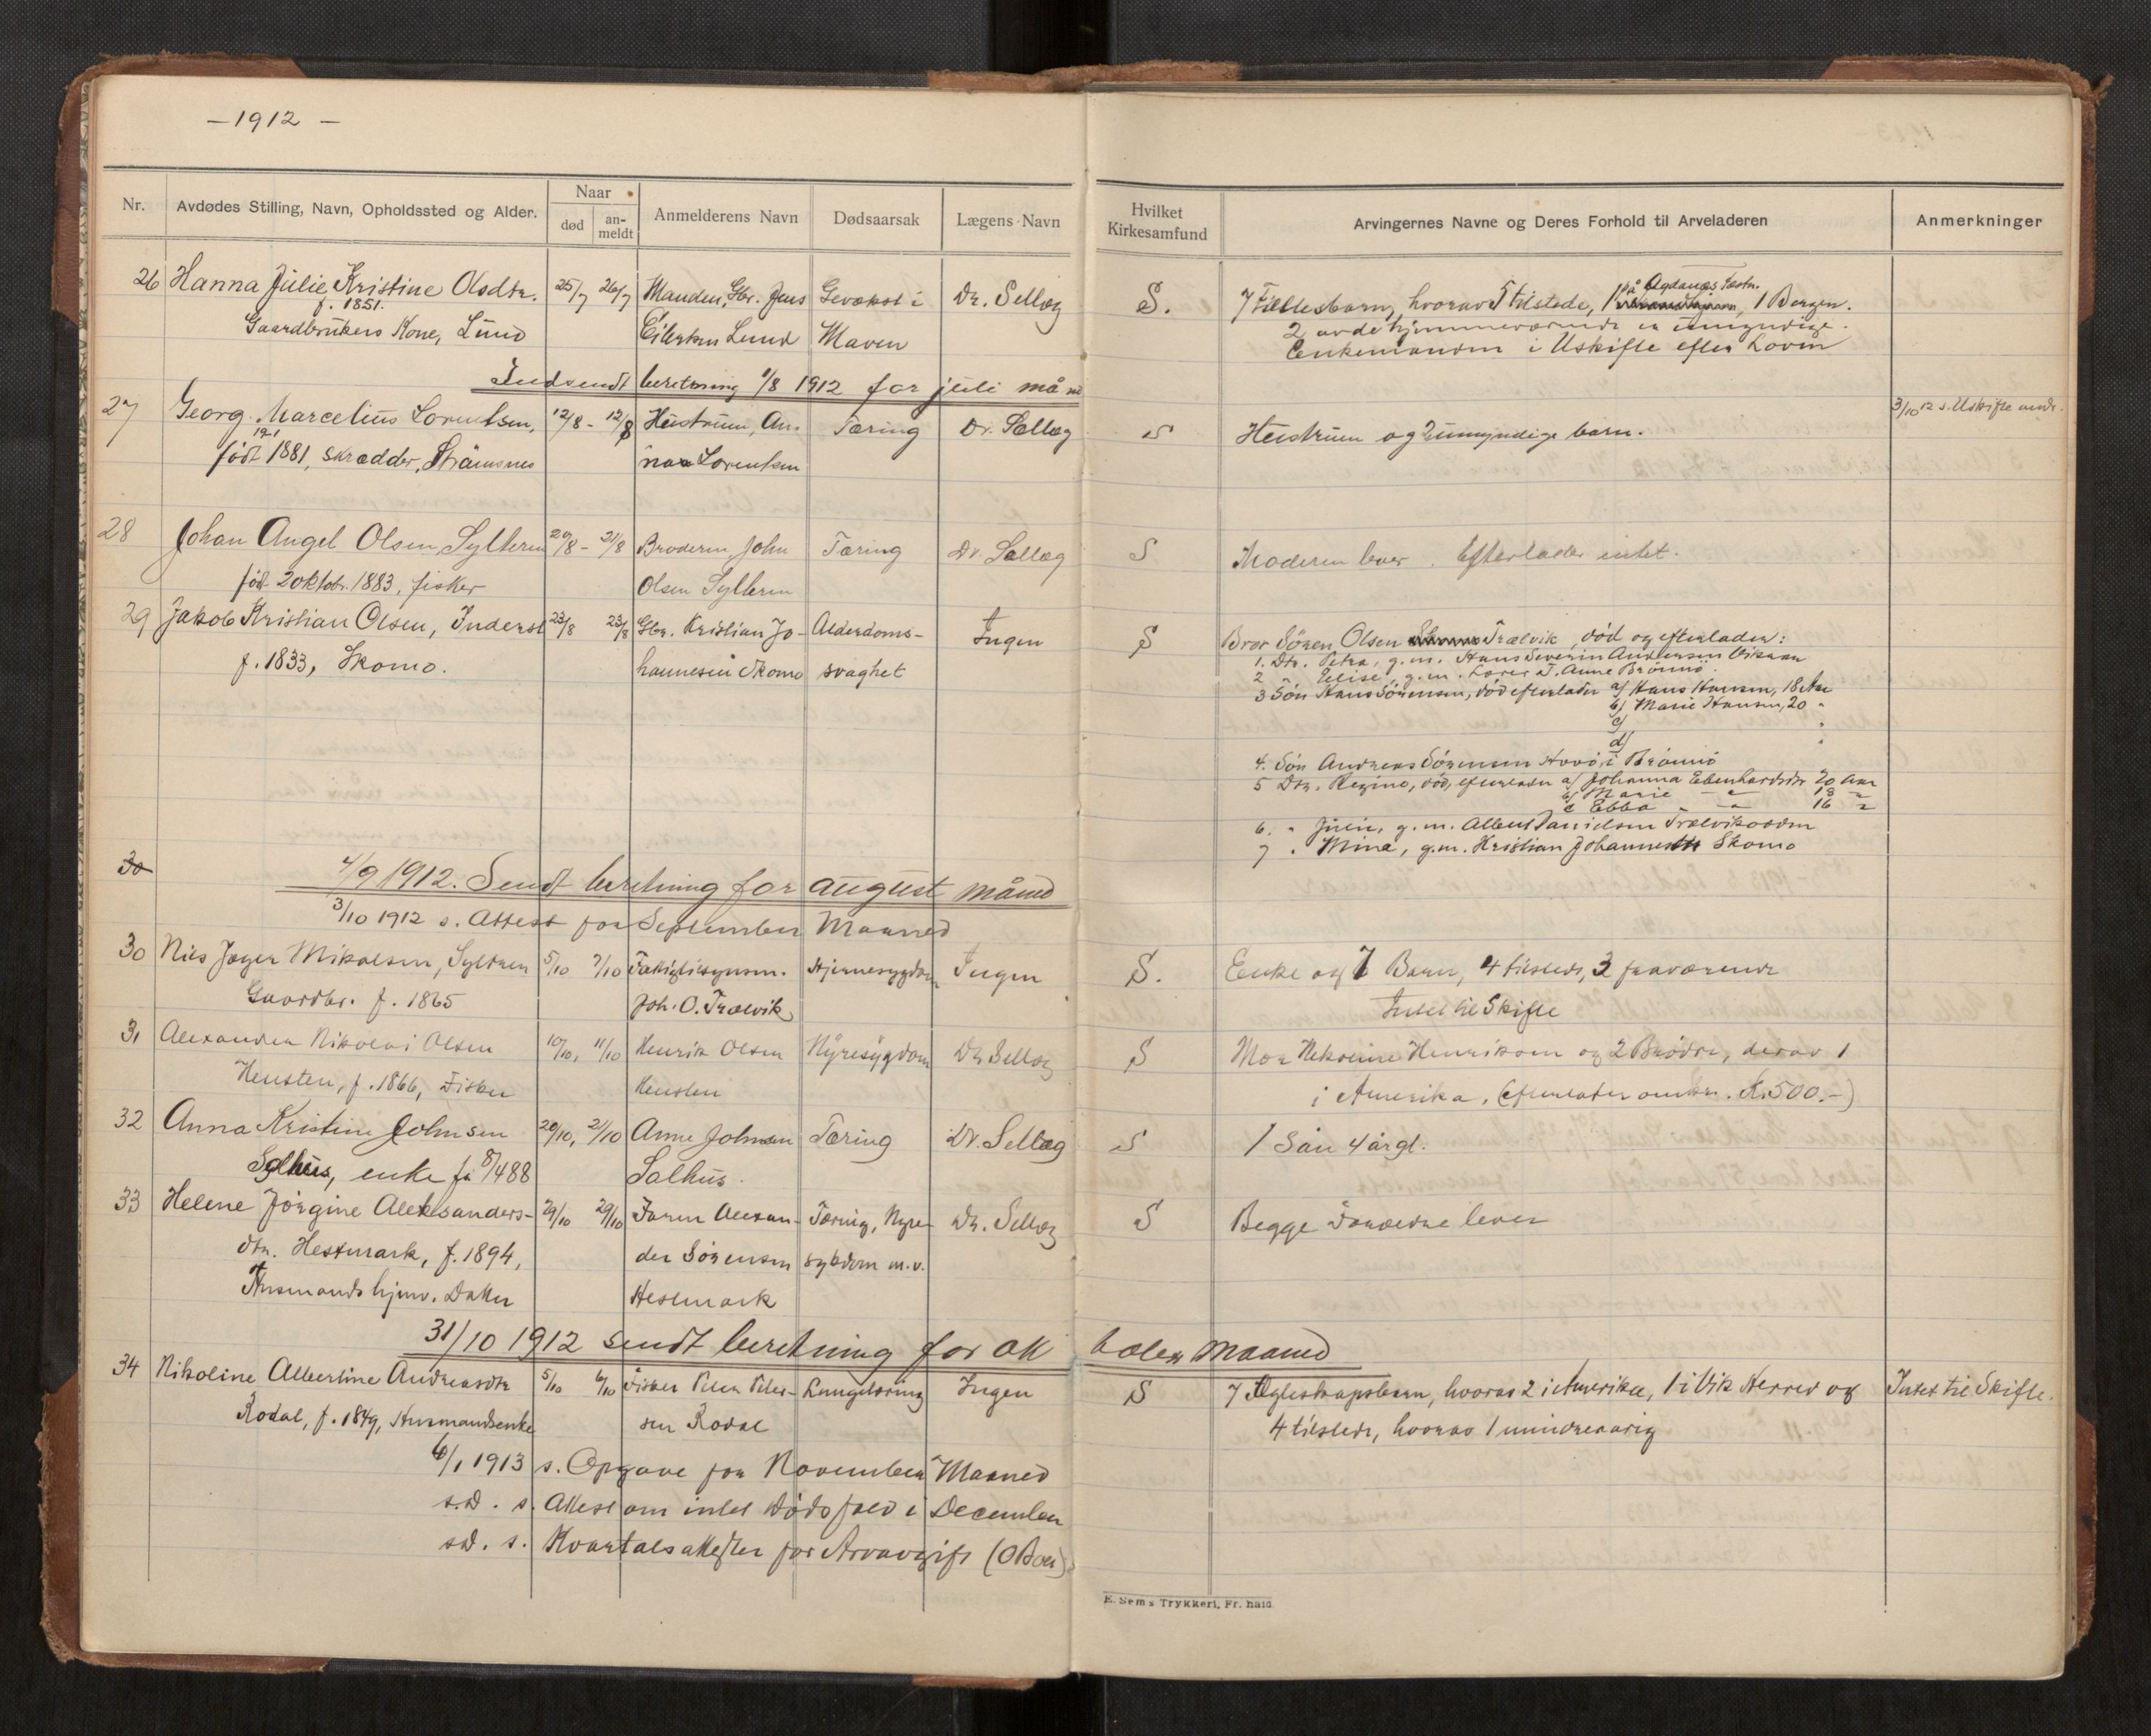 - 1912 -
Nr. Avdødes Stilling, Navn, Opholdssted og Alder. Naar død an-meldt Anmelderens Navn Dødsaarsak Lægens Navn Hvilket Kirkesamfund Arvingernes Navne og Deres Forhold til Arveladeren Anmerkninger
26 Hanna Julie Kristine Olsdtr. 25/7 26/7 Manden, Gbr. Jens Gevækst i Dr. Sellæg S. 7 Fællesbarn, hvorav 5 tilstede, 1 på Agdanæs Fæstn., 1 Bergen.
f. 1851.
Gaardbrukers Kone, Lund Eilertsen Lund Maven 2 av de hjemmeværende er umyndige.
Enkemanden i Uskifte efter Loven
Indsendt beretning 1/8 1912 for juli mån
27 Georg Marcelius Lorentsen, 12/8 - 12/8 Hustruen, An- Tæring Dr. Sellæg S Hustruen og 2 umyndige barn. 3/10 12 s. Uskifte
født 1881, skrædder, Strømsnes na Lorentsen
28 Johan Angel Olsen, Sylteren 20/8 - 21/8 Broderen John Tæring Dr. Sellæg S Moderen lever. Efterlader intet.
født 2 oktbr. 1883, fisker Olsen Sylteren
29 Jakob Kristian Olsen, Inderst 23/8 23/8 Gbr. Kristian Jo- Alderdoms- Ingen S Bror Sören Olsen Trælvik, död og efterlader:
f. 1833, Skomo. hannesen Skomo svaghet 1. Dtr. Petra, g.m. Hans Severin Andersen Viksaas
2 " Elise, g.m. Lærer J. Aune Brönnö
3 Sön Hans Sörensen, död efterlader a) Hans Hansen, 18 Aar
b) Marie Hansen, 20 "
c) "
d) "
4. Sön Andreas Sörensen i Brönnö
5 Dtr. Regine, död, efterlader a) Johanna Ebenhardsdtr 20 Aar
b) Marie " 18 "
c Ebba " 16 "
6. " Julie, g.m. Albert Danielsen Trælvikosen
7 " Mina, g.m. Kristian Johannessen Skomo
30
4/9 1912. Sendt beretning for august måned
3/10 1912 s. Attest for September Maaned
30 Nils Jæger Mikalsen, Sylteren 5/10 7/10 Fattigtilsynsm. Hjernesygdom Ingen S. Enke og 7 Barn, 4 tilstede, 3 fraværende
Gaardbr. f. 1865 Joh. O. Trælvik Intet til Skifte
31 Alexander Nikolai Olsen 10/10, 11/10 Henrik Olsen Nyresygdom Dr. Sellæg S Mor Nikoline Henriksen og 2 Brödre, derav 1
Hensten, f. 1866, Fisker Hensten i Amerika. (Efterlater omkr. K. 500.-)
32 Anna Kristine Johnsen 20/10, 21/10 Anne Johnsen Tæring Dr. Sellæg S 1 Sön 4 årgl.
Salhus, enke fø 8/4 88 Salhus.
33 Helene Jörgine Aleksanders- 29/10 29/10 Faren Alexan- Tæring, Nyre- Dr. Sellæg S Begge Forældre lever
dtr. Hestmark, f. 1894, der Sörensen sykdom m.v.
Husmands hjmv. Datter Hestmark
31/10 1912 sendt beretning for oktober maaned
34 Nikoline Albertine Andreasdtr 5/10 6/10 Fisker Peter Peter- Lungetæring Ingen S 7 Egteskapsbarn, hvorav 2 i Amerika, 1 i Vik Herred og Intet til Skifte.
Rodal, f. 1849, Husmandsenke sen Rodal 4 tilstede, hvorav 1 mindreaarig
6/1 1913 s. Opgave for November Maaned
s.D. s. Attest om intet Dödsfald i December
s.D. s. Kvartalsattester for Arvavgift (0 Boer)
E. Sems Trykkeri, Fr. hald